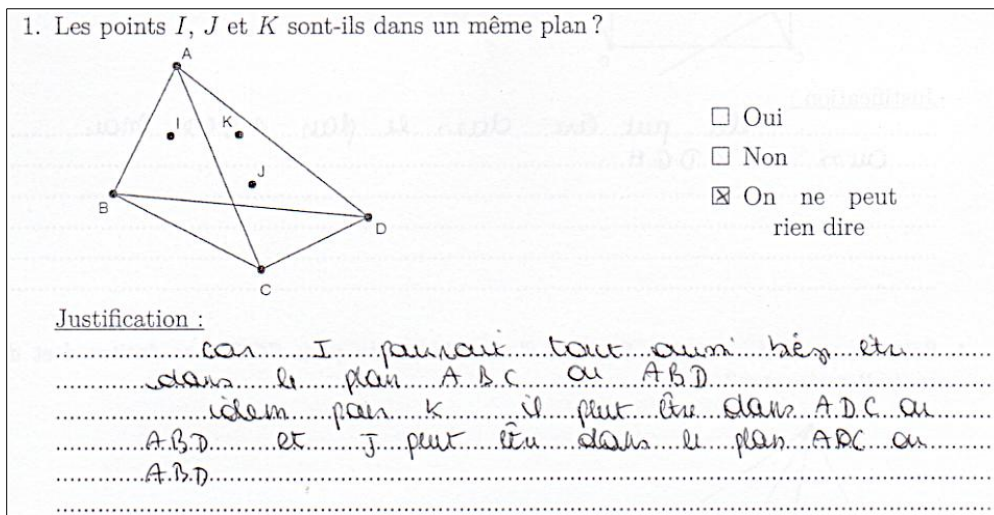 1. Les points I, J et K sont-ils dans un même plan ?
A
I
K
J
B
D
C
☐ Oui
☐ Non
☒ On ne peut
rien dire
Justification :
car I pourrait tout aussi bien etre
dans le plan ABC ou ABD
idem pour K il peut être dans ADC ou
ABD et J peut être dans le plan ADC ou
ABD